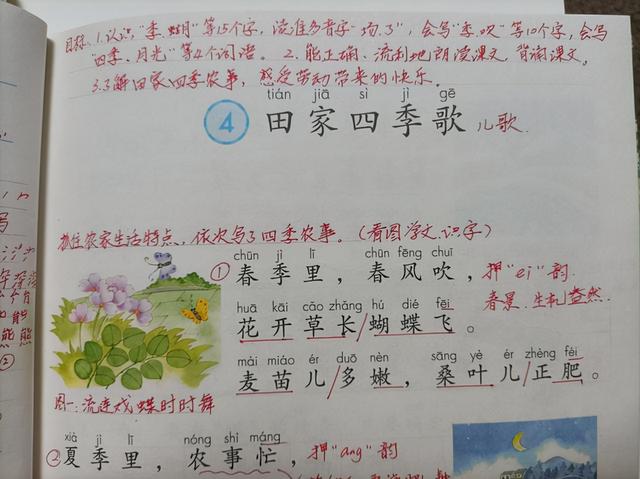 目标：1.认识“季、蝴”等15个字，读准多音字“场、了”，会写“季、吹”等10个字，会写
“四季、月光”等4个词语。2.能正确、流利地朗读课文，背诵课文。
3.了解田家四季农事，感受劳动带来的快乐。
tián jiā sì jì gē
4 田家四季歌 儿歌
抓住农家生活特点、依次写了四季农事。（看图学文、识字）
chūn jì lǐ chūn fēng chuī
①春季里，春风吹， 押“ei”韵
春景、生机盎然
huā kāi cǎo zhǎng hú dié fēi
花开草长/蝴蝶飞。
mài miáo ér duō nèn sāng yè ér zhèng féi
麦苗儿/多嫩，桑叶儿/正肥。
图一：流连戏蝶时时舞
xià jì lǐ nóng shì máng
②夏季里，农事忙， 押“ang”韵